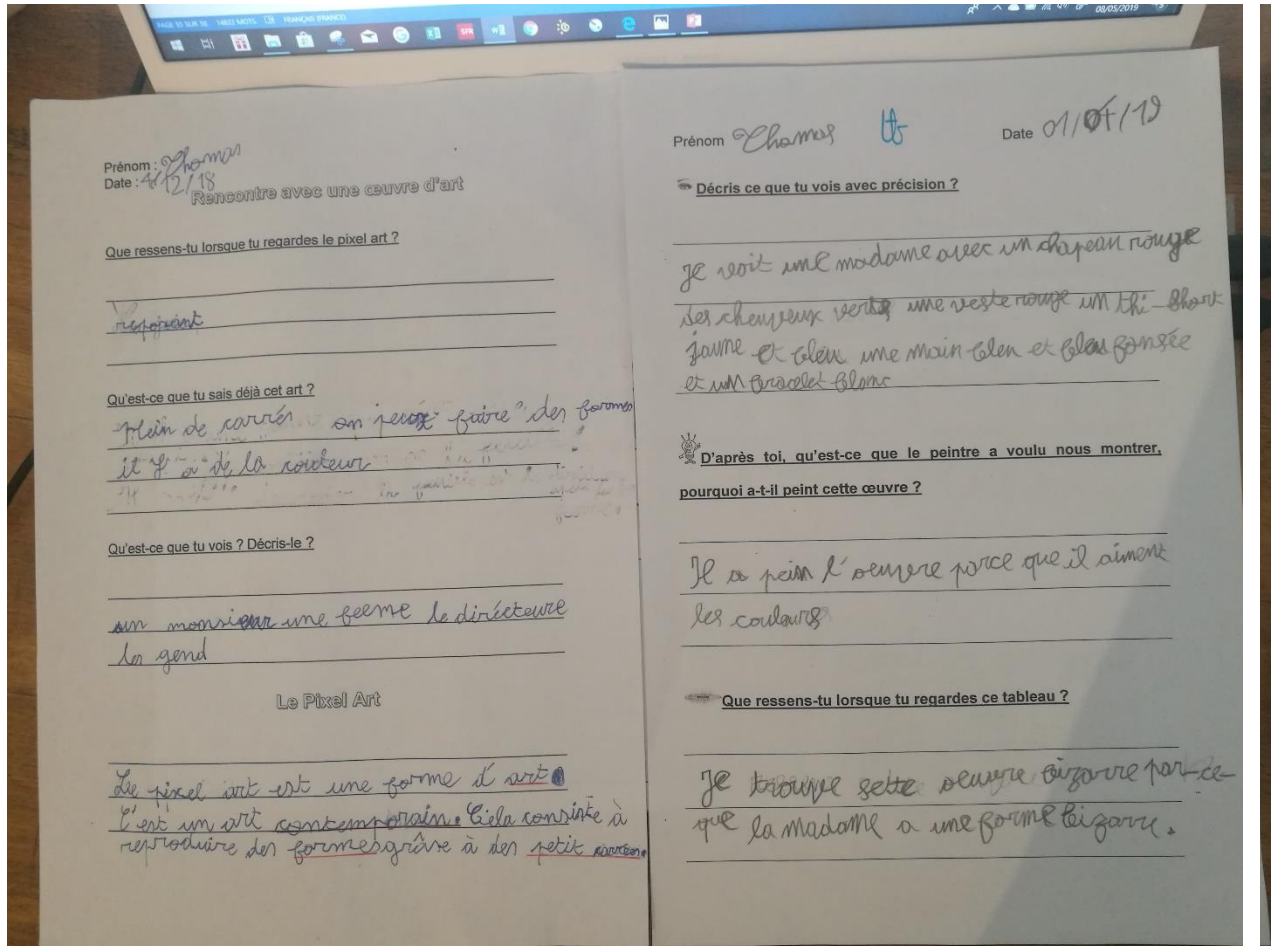 PAGE 51 SUR 58 14823 MOTS FRANÇAIS (FRANCE)
08/05/2019
Prénom : Thomas
Date : 4/12/18
Rencontre avec une œuvre d'art
Que ressens-tu lorsque tu regardes le pixel art ?
reposant
Qu'est-ce que tu sais déjà cet art ?
Plein de carrés on peux faire des formes
it y a de la couleur
Qu'est-ce que tu vois ? Décris-le ?
un monsieur une feeme le dirécteure
les gend
Le Pixel Art
Le pixel art est une forme d'art
C'est un art contemporain. Cela consiste à
reproduire des formes grâve à des petit carrées.
Prénom Thomas tb Date 01/04/19
Décris ce que tu vois avec précision ?
Je voit une madame avec un chapeau rouge
des cheuveux verts une veste rouge un thi-short
jaune et bleu une main bleu et bleu fonsée
et un bracelet blanc
D'après toi, qu'est-ce que le peintre a voulu nous montrer,
pourquoi a-t-il peint cette œuvre ?
Il a pein l'oeuvre parce que il aiment
les couleurs
Que ressens-tu lorsque tu regardes ce tableau ?
Je trouve sette oeuvre bizarre par-ce-
que la madame a une forme bizarre.